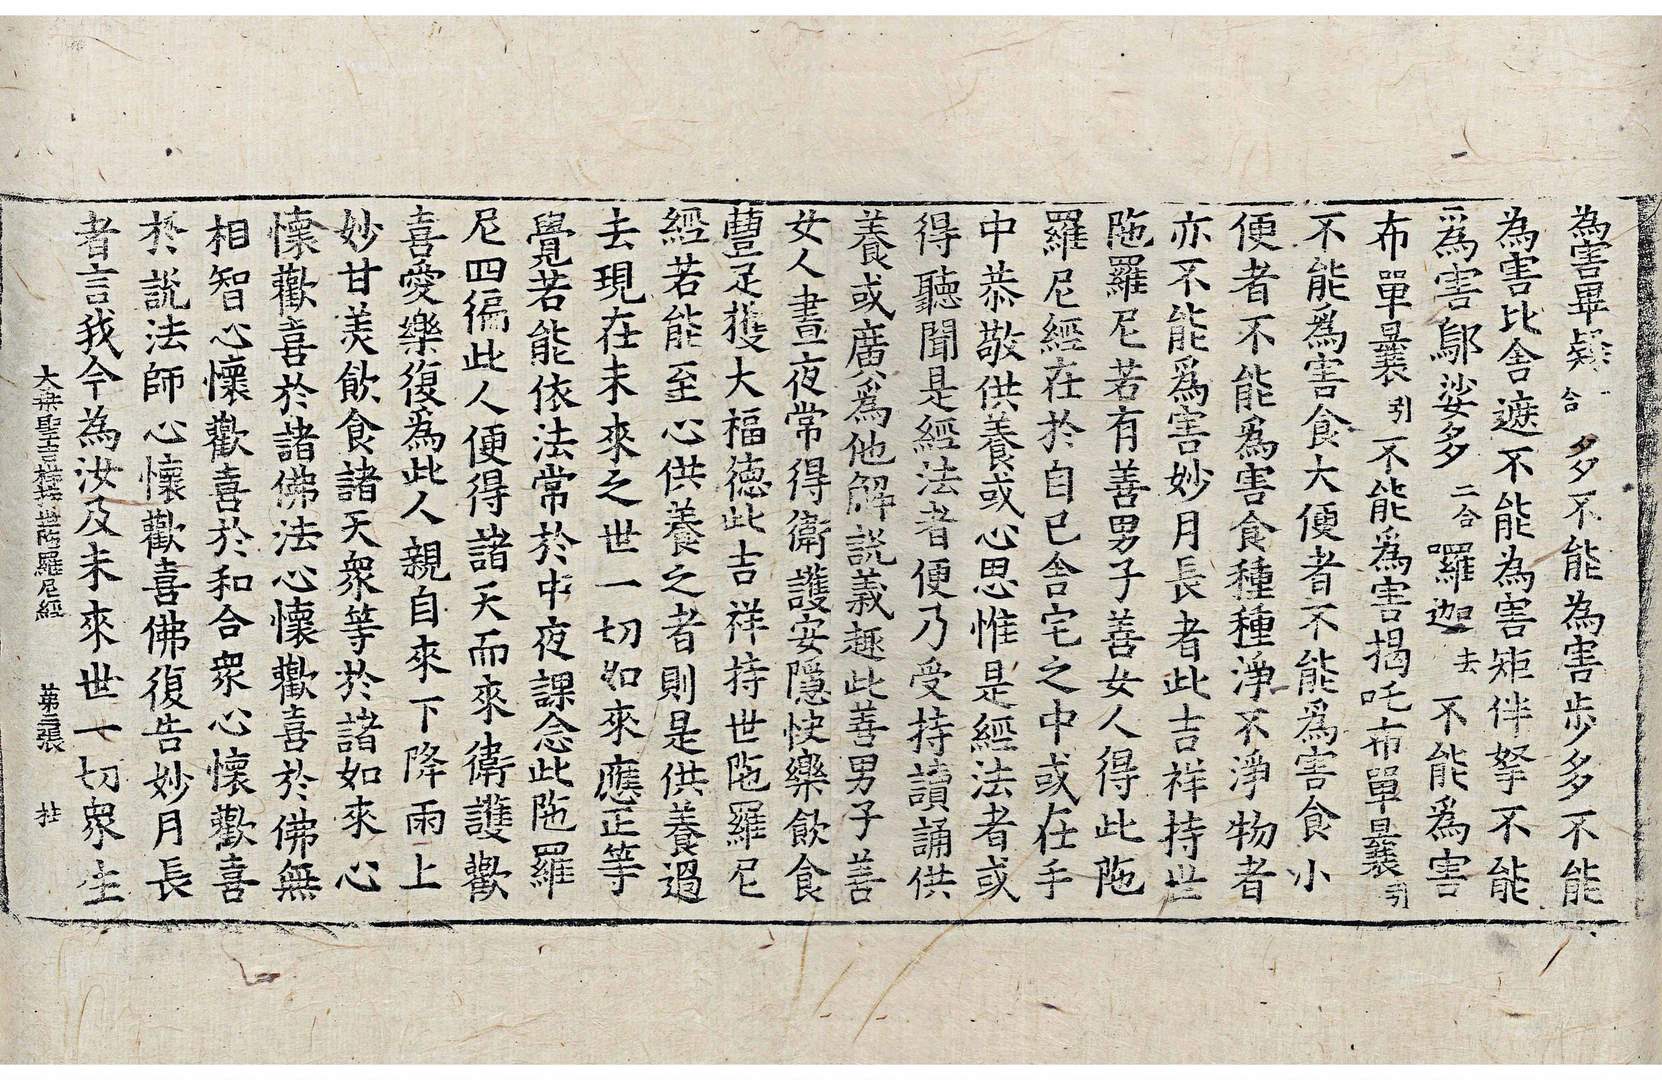 為害畢㘈二合多不能為害步多不能
為害比舍遮不能為害矩伴拏不能
為害鄔娑多二合囉迦去不能為害
布單曩引不能為害揭吒布單曩引
不能為害食大便者不能為害食小
便者不能為害食種種淨不淨物者
亦不能為害妙月長者此吉祥持世
陁羅尼若有善男子善女人得此陁
羅尼經在於自己舍宅之中或在手
中恭敬供養或心思惟是經法者或
得聽聞是經法者便乃受持讀誦供
養或廣為他解說義趣此善男子善
女人晝夜常得衛護安隱快樂飲食
豊足獲大福德此吉祥持世陁羅尼
經若能至心供養之者則是供養過
去現在未來之世一切如來應正等
覺若能依法常於中夜課念此陁羅
尼四徧此人便得諸天而來衛護歡
喜愛樂復為此人親自來下降雨上
妙甘美飲食諸天衆等於諸如來心
懷歡喜於諸佛法心懷歡喜於佛無
相智心懷歡喜於和合衆心懷歡喜
於說法師心懷歡喜佛復告妙月長
者言我今為汝及未來世一切衆生
大乘聖吉祥持世陁羅尼經 第二張